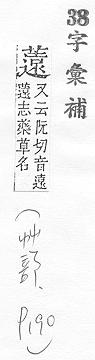 38字彙補
薳 又云阮切音遠
薳志藥草名
(艸部,
P190)